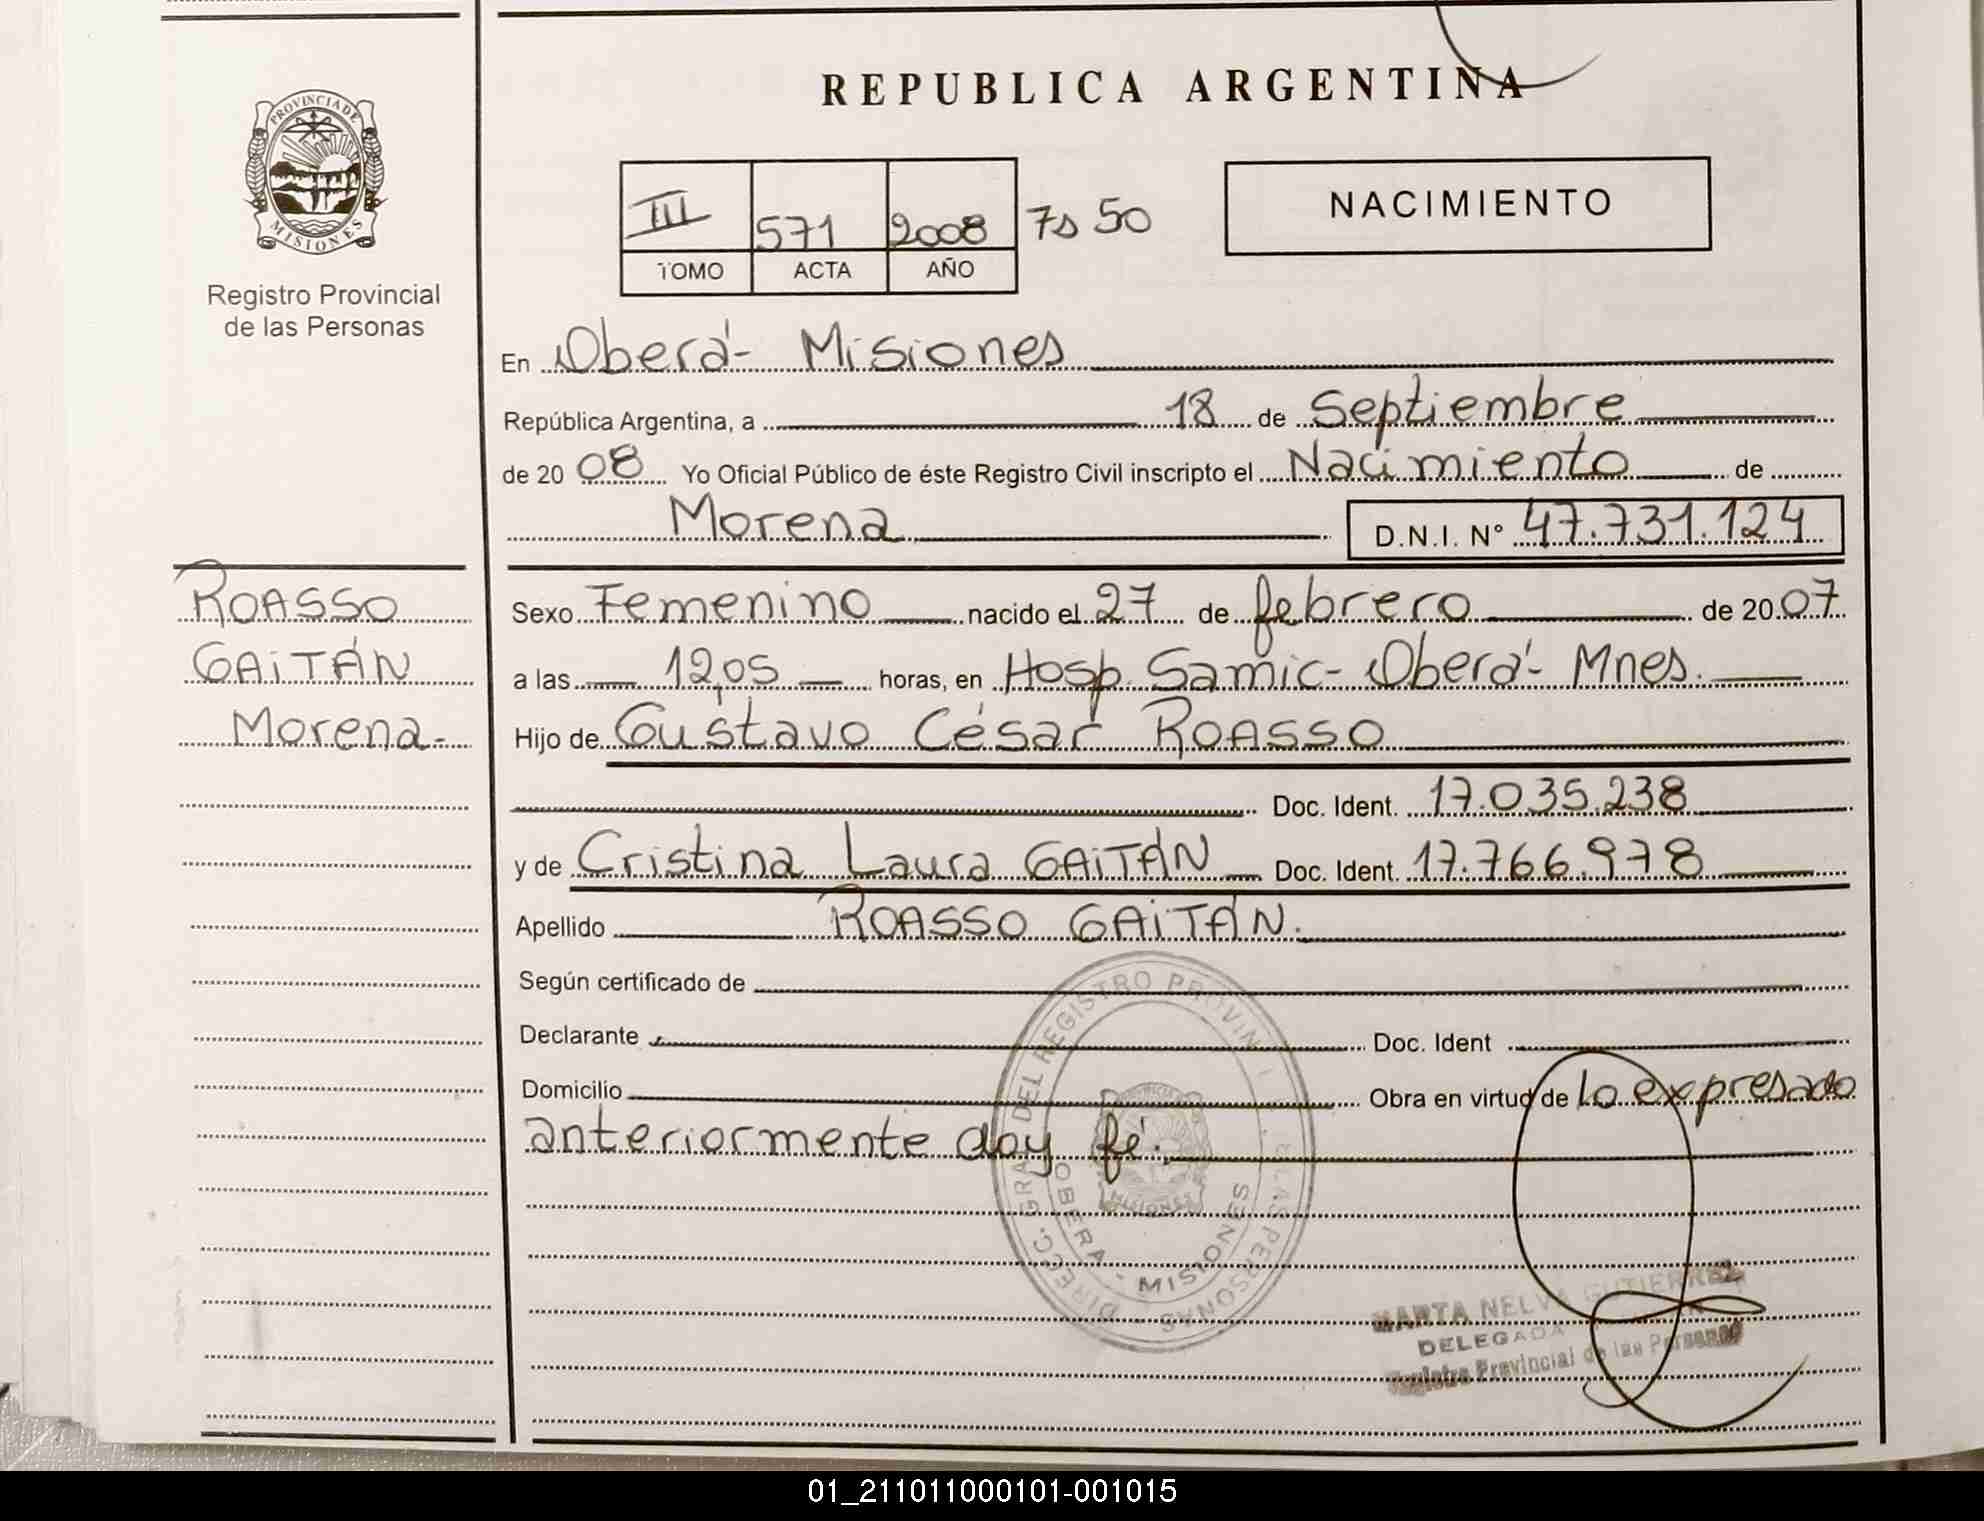 REPUBLICA ARGENTINA
PROVINCIA DE
MISIONES
Registro Provincial
de las Personas
III 571 2008 Fs 50
TOMO ACTA AÑO
NACIMIENTO
En Oberá- Misiones
República Argentina, a 18 de Septiembre
de 2008 Yo Oficial Público de éste Registro Civil inscripto el Nacimiento de
Morena D.N.I. Nº 47.731.124
ROASSO
GAITÁN
Morena-
Sexo Femenino nacido el 27 de febrero de 2007
a las 12,05 horas, en Hosp. Samic- Oberá- Mnes.
Hijo de Gustavo César ROASSO
Doc. Ident. 17.035.238
y de Cristina Laura GAITÁN Doc. Ident. 17.766.978
Apellido ROASSO GAITÁN.
Según certificado de
Declarante Doc. Ident
Domicilio Obra en virtud de lo expresado
anteriormente doy fé.
DIRECC. GRAL DEL REGISTRO PROVIN DE LAS PERSONAS
OBERA - MISIONES
MISIONES
MARTA NELVA GUTIERREZ
DELEGADA
Registro Provincial de las Personas
01_211011000101-001015